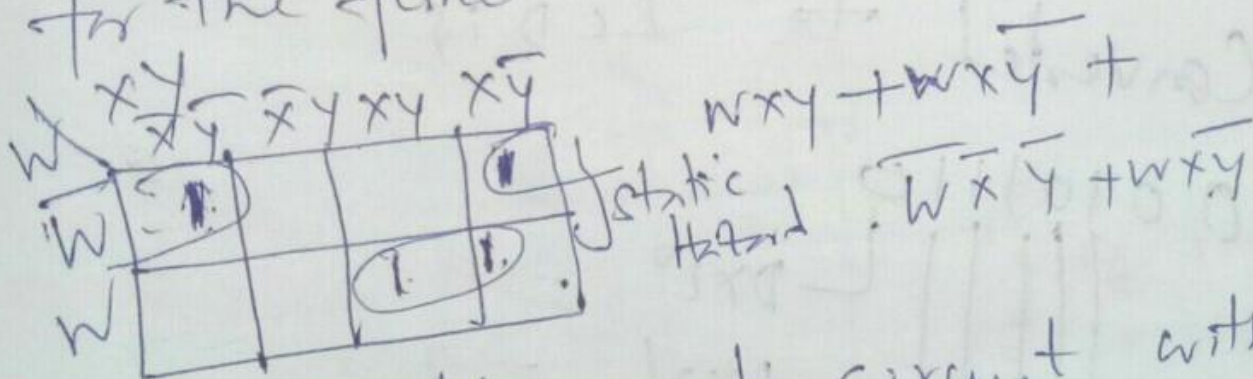 for the
XY
W X̅Y̅ X̅Y XY XY̅
W̅ 1 1
W 1 1
static
Hazard
WXY + WXY̅ +
W̅ X̅ Y̅ + WXY̅
circuit with